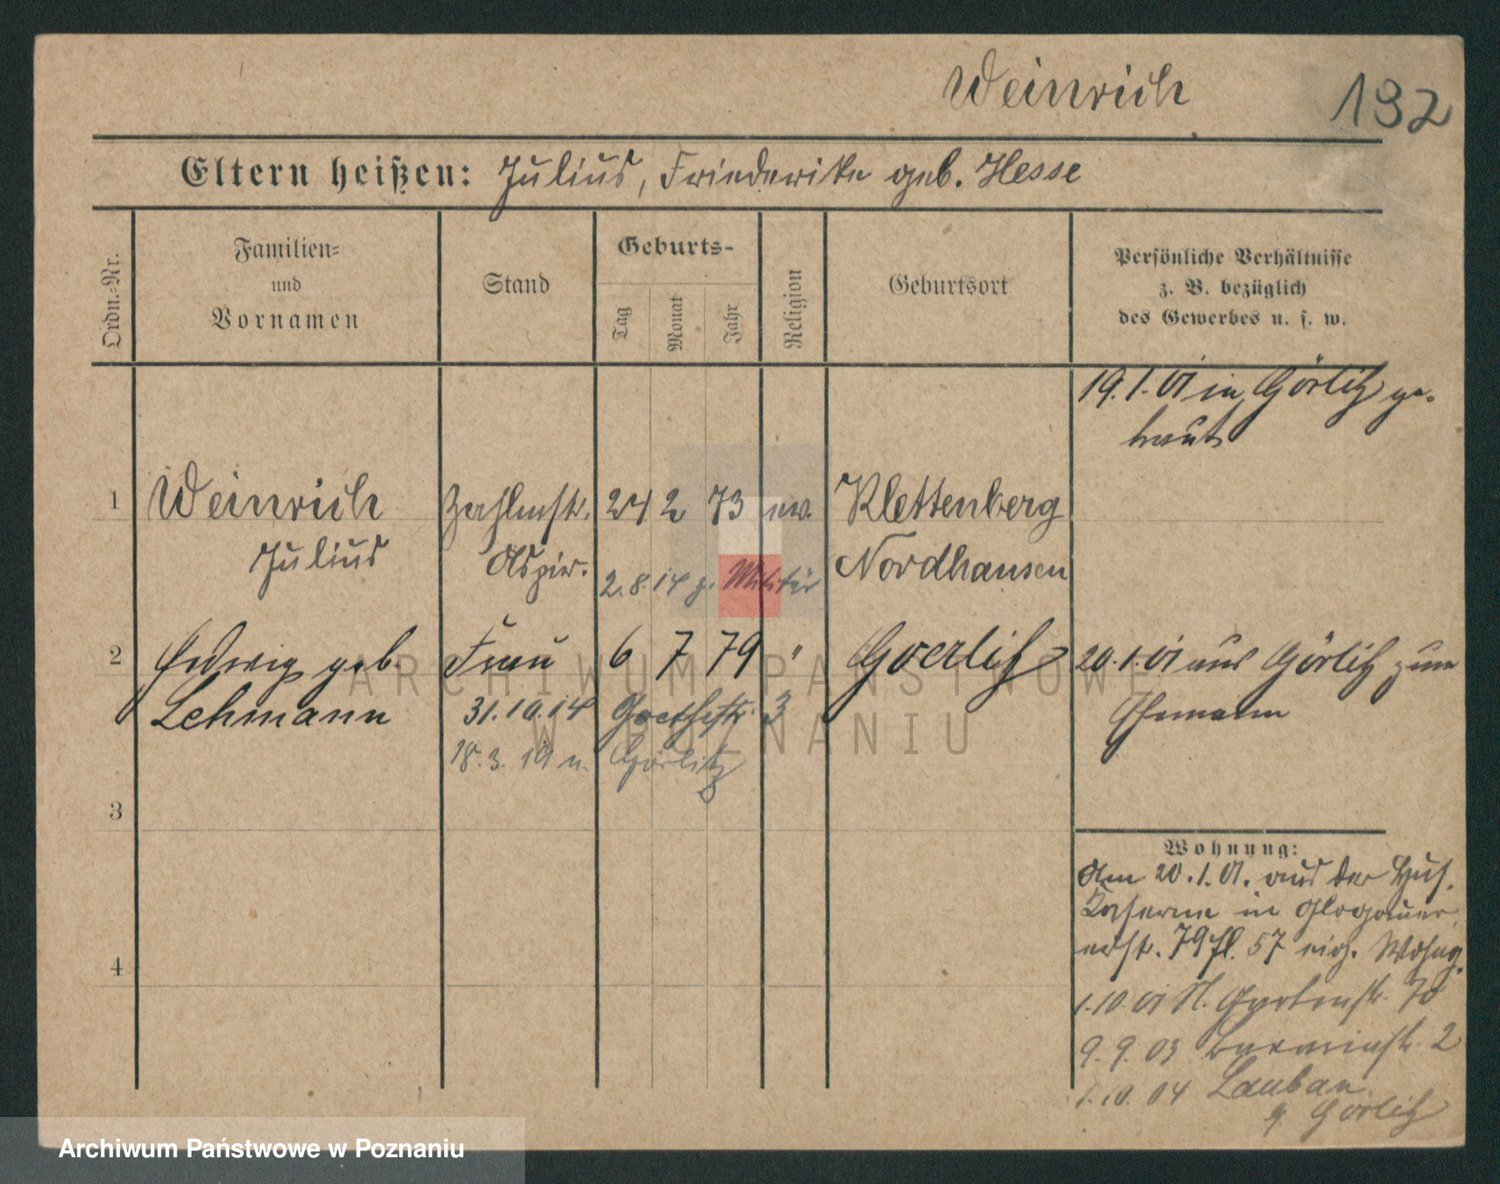 Weinrich
132
Eltern heißen: Julius, Friederike geb. Hesse
Ordn.-Nr.
Familien-
und
Vornamen
Stand
Geburts-
Tag
Monat
Jahr
Religion
Geburtsort
Persönliche Verhältnisse
z. B. bezüglich
des Gewerbes u. s. w.
19.1.01 in Görlitz ge-
traut
1 Weinrich Zahlmstr. 24 2 73 ev. Klettenberg
Julius Aspir. Nordhausen
2.8.14 z. Militär
2 Hedwig geb. Frau 6 7 79 " Goerlitz 20.1.01 aus Görlitz zum
Lehmann 31.10.14 Goethestr. 3 Ehemann
18.3.19 n. Görlitz
3
Wohnung:
Am 20.1.01. aus der Hus.
Kaserne in Glogauer
str. 79 57 eig. Wohng.
4
1.10.01 N. Gartenstr. 70
9.9.03 2
1.10.04 Lauban
Görlitz
ARCHIWUM PAŃSTWOWE
W POZNANIU
Archiwum Państwowe w Poznaniu